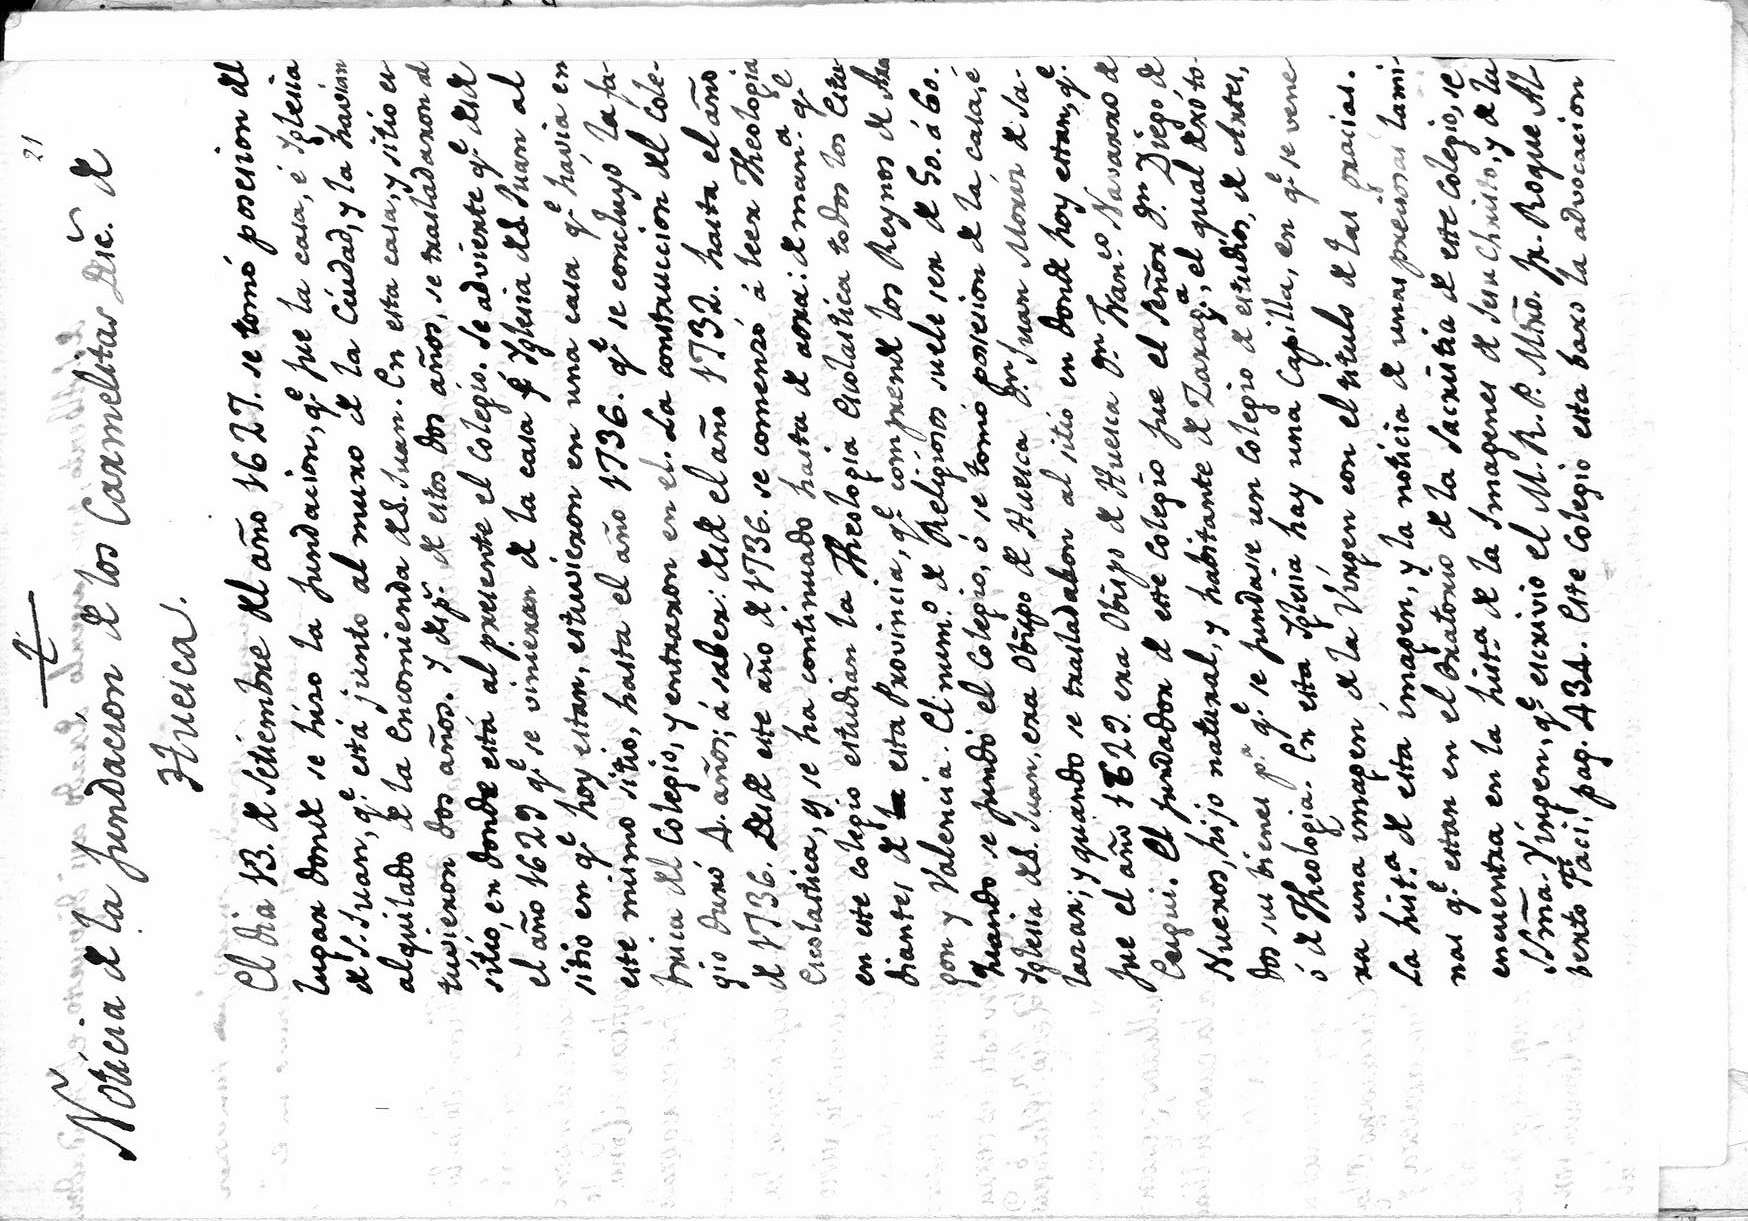 21
Noticia de la fundacion de los Carmelitas Desc. de
Huesca.
El dia 13. de Setiembre del año 1627. se tomó posesion del
lugar donde se hizo la fundacion, q.e fue la casa, é Iglesia
de S. Juan, q.e está junto al muro de la Ciudad, y la havian
alquilado de la Encomienda de S. Juan. En esta casa, y sitio es-
tuvieron dos años. Y desp.s de estos dos años, se trasladaron al
sitio, en donde está al presente el Colegio. Se advierte q.e desde
el año 1629 q.e se vinieron de la casa é Iglesia de S. Juan al
sitio en q.e hoy estan, estuvieron en una casa q.e havia en
este mismo sitio, hasta el año 1736. q.e se concluyó la fa-
brica del Colegio, y entraron en el. La construccion del Cole-
gio duró 4. años; á saber: desde el año 1732. hasta el año
de 1736. Desde este año de 1736. se comenzó á leer Theologia
Escolastica, y se ha continuado hasta de aora: de man.a q.e
en este colegio estudian la Theologia Escolastica todos los Estu-
diantes de esta Provincia, q.e comprende los Reynos de Ara-
gon y Valencia. El num.o de Religiosos suele ser de 50. á 60.
Quando se fundó el Colegio, ó se tomó posesion de la casa, é
Iglesia de S. Juan, era Obispo de Huesca D.n Juan Moriz de Sa-
lazar; y quando se trasladaron al sitio en donde hoy estan, q.e
fue el año 1629. era Obispo de Huesca D.n Fran.co Navarro de
Eugui. El fundador de este Colegio fue el Señor D.n Diego de
Nueros, hijo natural, y habitante de Zarag.a, el qual dexó to-
dos sus bienes p.a q.e se fundase un Colegio de estudios, de Artes,
ó de Theologia. En esta Iglesia hay una Capilla, en q.e se vene-
ra una imagen de la Virgen con el titulo de las gracias.
La hist.a de esta imagen, y la noticia de unas preciosas lami-
nas q.e estan en el Oratorio de la Sacristia de este Colegio, se
encuentra en la hist.a de la Imagenes de Jesu Christo, y de la
Ssma. Virgen, q.e escrivio el M. R. P. Mtro. Fr. Roque Al-
berto Faci, pag. 434. Este Colegio esta baxo la advocacion